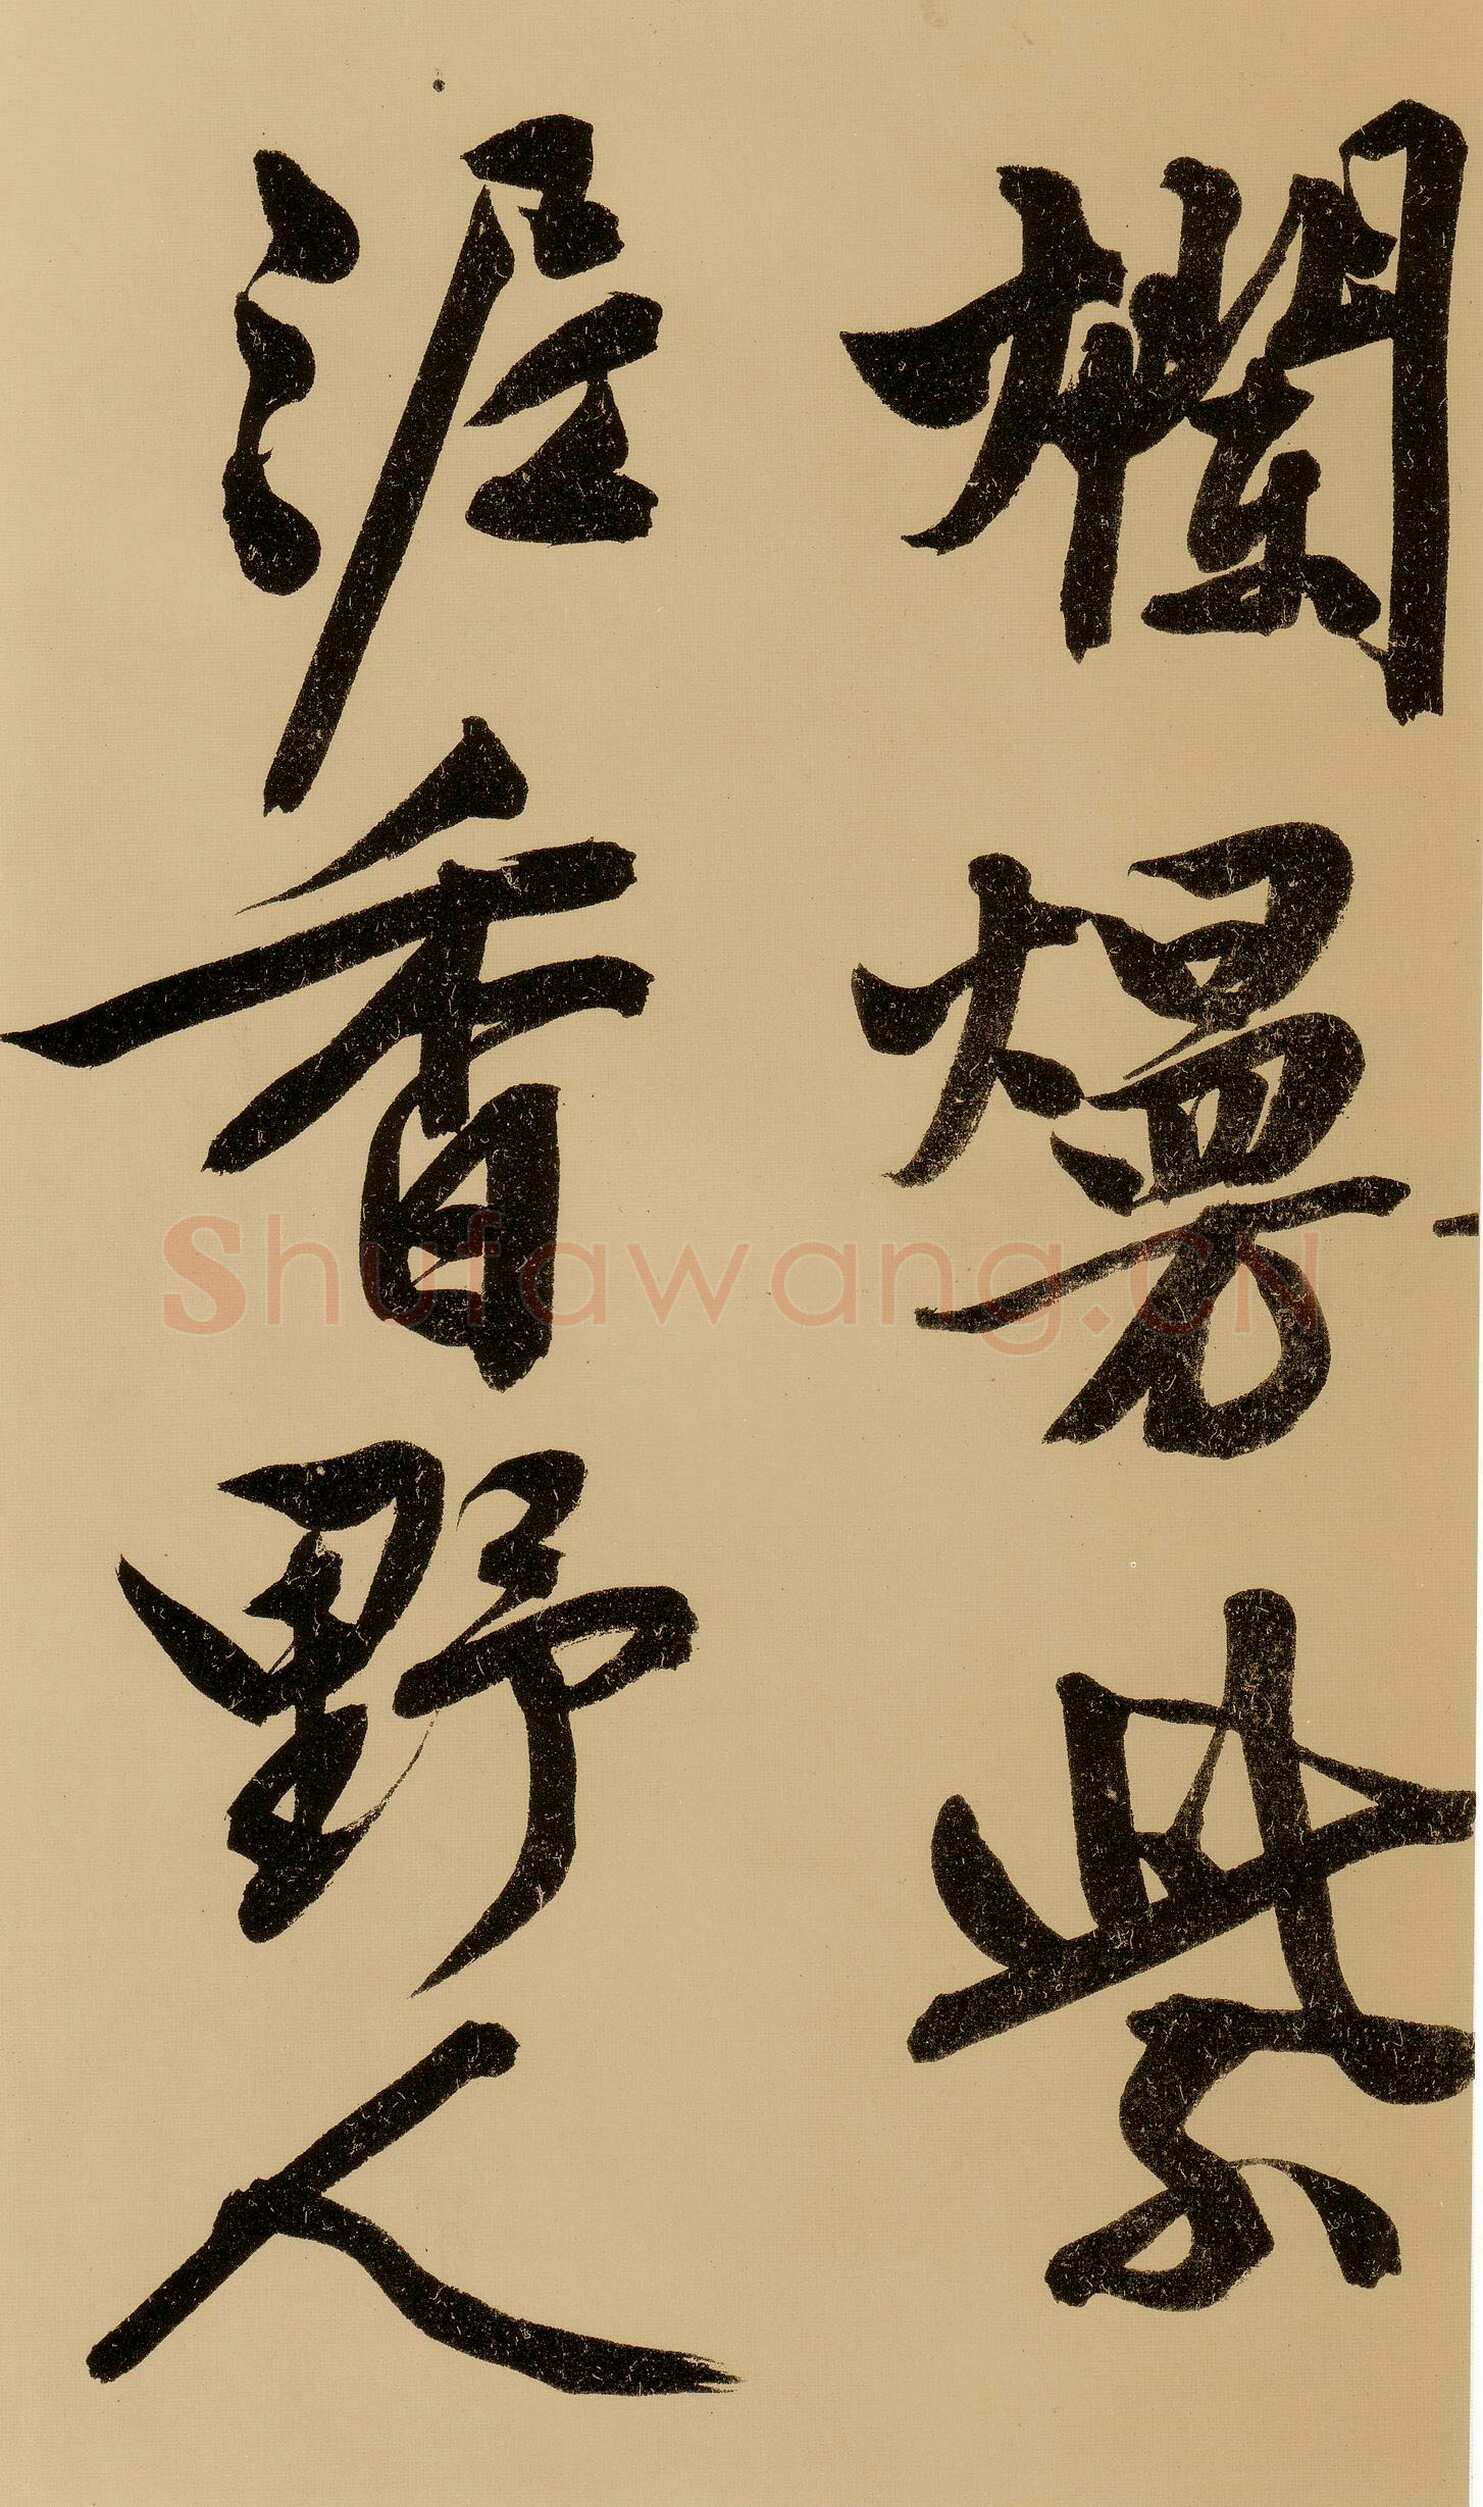 爛熳紫
涯香野人
Shufawang.CN